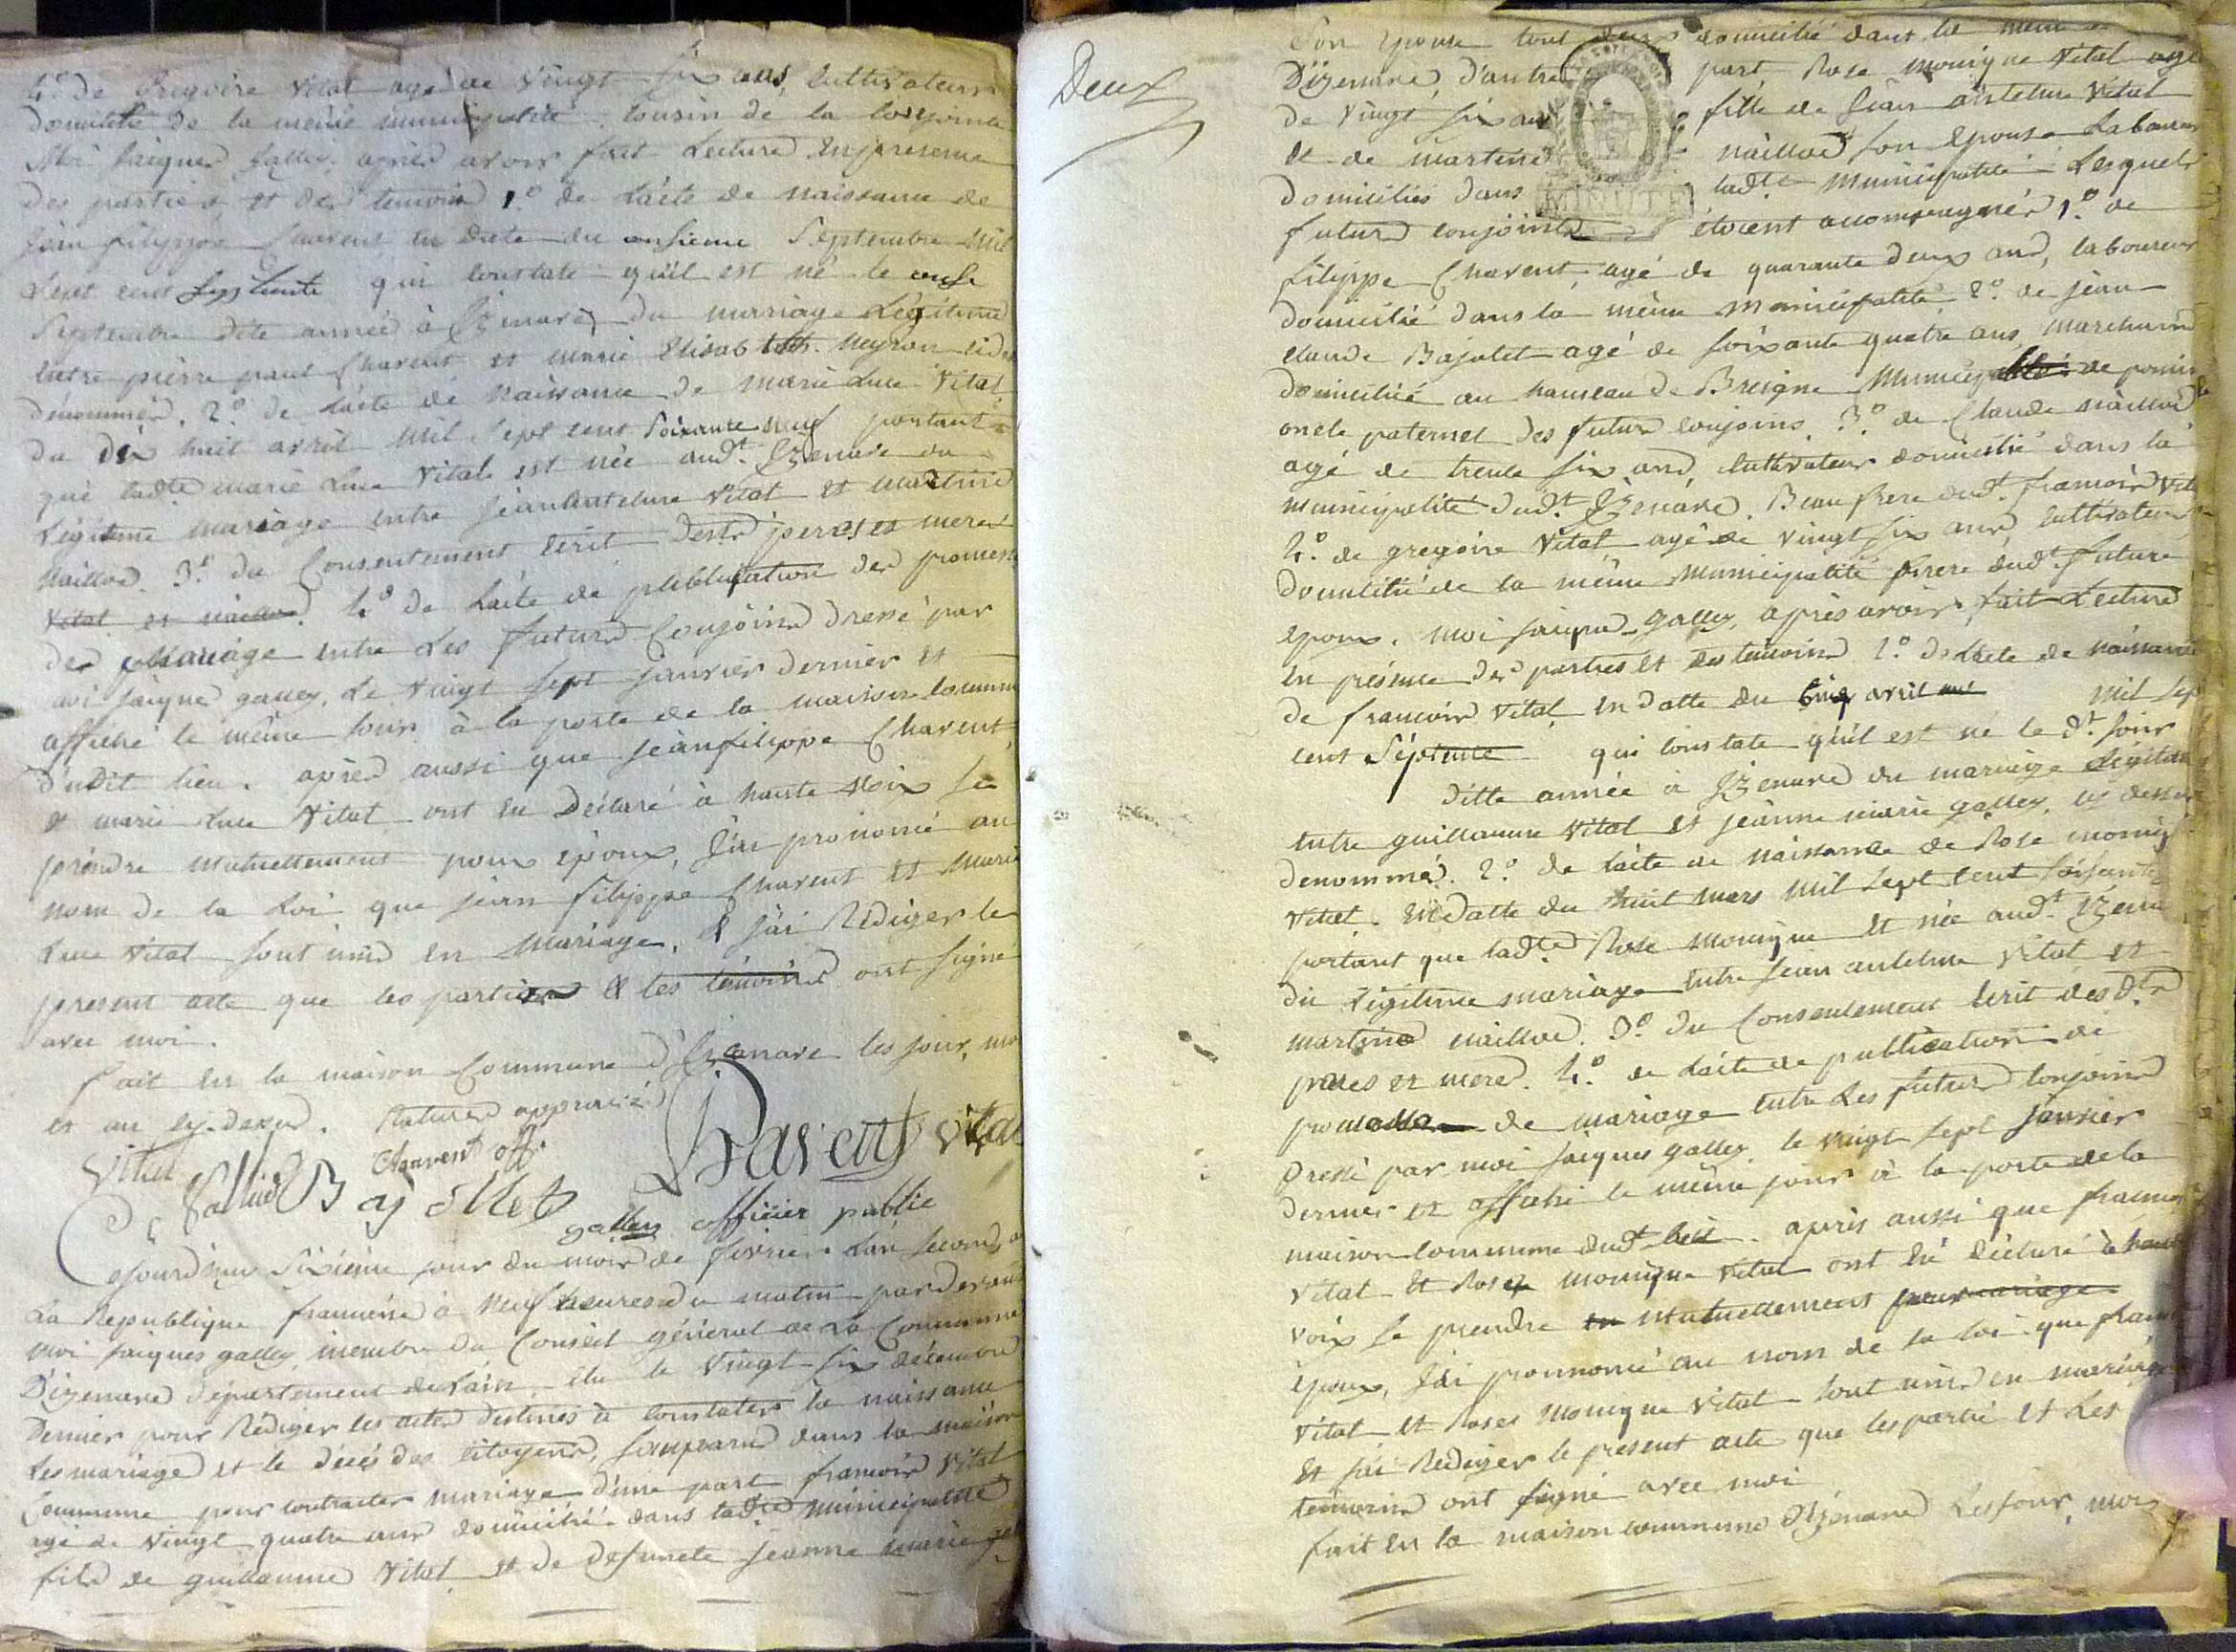 4.° de Gregoire Vital agé de Vingt six ans, Cultivateur
domicilié de la même municipalité cousin de la conjointe
Moi Jaiques Galley, après avoir fait Lecture En presence
Des parties et des temoins 1.° de L'acte de naissance de
Jean filippe Charvent en date du onsieme Septembre Mil
Sept cent Septante qui constate qu'il est né le onse
Septembre dite année à Izenave, du mariage Légitime
Entre pierre paul Charvent et marie Elisabeth Neyron
dénommés. 2.° de L'acte de Naissance de Marie Luce Vital
du dix huit avril Mil Sept cent Soixante neuf portant
que ladte marie Luce Vitale est née audt. Izenave du
Légitime mariage entre Jean Antelme Vital et Martine
Naillod. 3.° du Consentement Ecrit Desd peres et meres
Vital et Naillod. 4.° de L'acte de publication des promesses
der Mariage entre Les futurs Conjoins dressé par
moi Jaique galley, Le Vingt Sept Janvier dernier et
affiché le même Jour à la porte de la maison commune
dudit lieu. après aussi que Jean filippe Charvent
& marie Luce Vital ont eu Déclaré à haute Voix Se
prendre Mutuellement pour époux, J'ai prononcé au
nom de la Loi que Jean filippe Charvent Et Marie
Luce Vital Sont unis En Mariage, & J'ai Rediger le
present acte que les parties & les témoins ont Signé
avec moi.
fait En la maison Commune d'Izenave les jour, mois
et an cy-dessus. Rature approuvé
Vital Charvent off. Charvent Vital
Bajollet
galley officier public
Cejourd'hui Sixieme jour du mois de fevrier L'an Second de
La Republique francoise à Neuf heures du matin par devant
moi Jaiques galley, membre du Conseil général de La Commune
D'izenave Département de L'ain, élu le Vingt Six décembre
Dernier pour Rédiger les actes Destinés à constater la naissance
Les mariages et le décés des citoyens, Comparus dans la maison
Commune pour contracter Mariage, D'une part francois Vital
agé de Vingt quatre ans domicilié dans ladte Municipalité
fils de guillaume Vital et de defuncte Jeanne Marie
Deux
Son Epouse tout deux domicilié dans la meme
D'izenave, d'autre part, Rose Monique Vital agé
de Vingt Six ans fille de Jean antelme Vital
et de Martine Naillod Son Epouse Laboureur
domiciliés dans ladte Municipalité Lesquels
MINUTE
futurs conjoints étoient accompagnés 1.° de
filippe Charvent, agé de quarante deux ans, laboureur
domicilié dans la même Municipalité 2.° de jean
claude Bajolet agé de Soixante quatre ans, Marchand
domicilié au hameau de Breigne Municipalité de
oncle paternel des futur conjoins. 3.° de Claude Naillod
agé de trente Six ans, cultivateur domicilié dans la
municipalité dudt. Izenave, Beau frere dudt. francois Vital
4.° de gregoire Vital, agé de vingt six ans cultivateur
Domicilié de la même Municipalité frere dudt. future
Epoux. Moi Jaique Galley, après avoir fait Lecture
En présence des parties Et des temoins 1.° de L'acte de naissance
de francois Vital, En datte du Cinq avril Mil Sept
cent Septante qui constate qu'il est né le dt. Jour
ditte année à Izenave du mariage Légitime
Entre guillaume Vital et Jeanne Marie galley,
denommés. 2.° de L'acte de Naissance de Rose moniq
Vital. En datte du huit Mars Mil Sept cent Soisante
portant que ladte Rose Monique Et née audt. Izena
du Légitime mariage Entre Jean antelme Vital et
martine Naillod. 3.° du Consentement Ecrit des dts
peres et mere. 4.° de L'acte de publication de
promesse de mariage Entre Les futurs conjoins
Dressé par moi Jaiques galley, le Vingt Sept Janvier
dernier et affiché le même jour à la porte de la
maison commune dudt lieu. après aussi que francois
Vital Et Rose monique Vital ont Eu Déclaré à haute
voix Se prendre en Mutuellement pour mariage
Epoux, J'ai prononcé au nom de la Loi que fran
Vital et Roses Monique Vital Sont unis en mariage
Et J'ai Rediger le present acte que les partie Et Les
temoins ont Signé avec moi
fait En la maison commune D'Izenave Les jour, mois